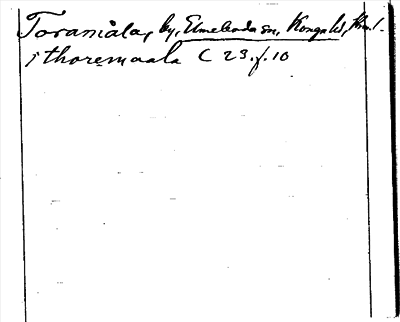 Toramåla, by, Elmeboda sn, Konga hd, Kron. l.
i thoremaala C 23. f. 10